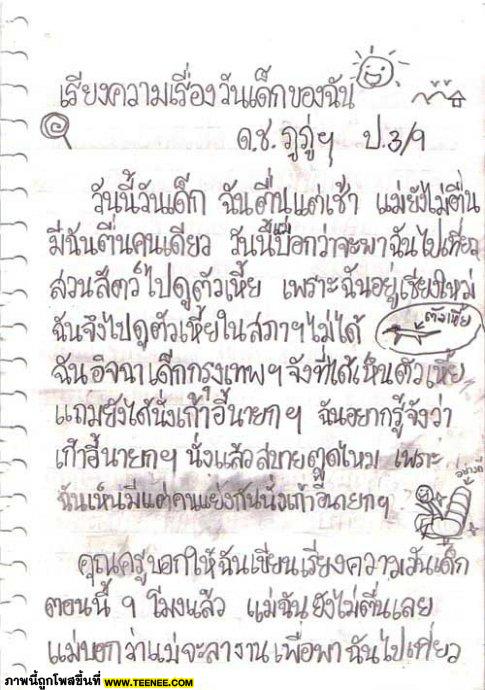 เรียงความเรื่องวันเด็กของฉัน
ด.ช. ภูภู่ฯ ป.3/9
วันนี้วันเด็ก ฉันตื่นแต่เช้า แม่ยังไม่ตื่น
มีฉันตื่นคนเดียว วันนี้บอกว่าจะพาฉันไปเที่ยว
สวนสัตว์ไปดูตัวเหี้ย เพราะฉันอยู่เชียงใหม่
ฉันจึงไปดูตัวเหี้ยในสภาฯไม่ได้
ตัวเหี้ย
ฉันอิจฉาเด็กกรุงเทพฯจังที่ได้เห็นตัวเหี้ย
แถมยังได้นั่งเก้าอี้นายกฯ ฉันอยากรู้จังว่า
เก้าอี้นายกฯ นั่งแล้วสบายตูดไหม เพราะ
ฉันเห็นมีแต่คนแย่งกันนั่งเก้าอี้นายกฯ
คุณครูบอกให้ฉันเขียนเรียงความวันเด็ก
ตอนนี้ 9 โมงแล้ว แม่ฉันยังไม่ตื่นเลย
แม่บอกว่าแม่จะลางานเพื่อพาฉันไปเที่ยว
ภาพนี้ถูกโพสขึ้นที่ WWW.TEENEE.COM